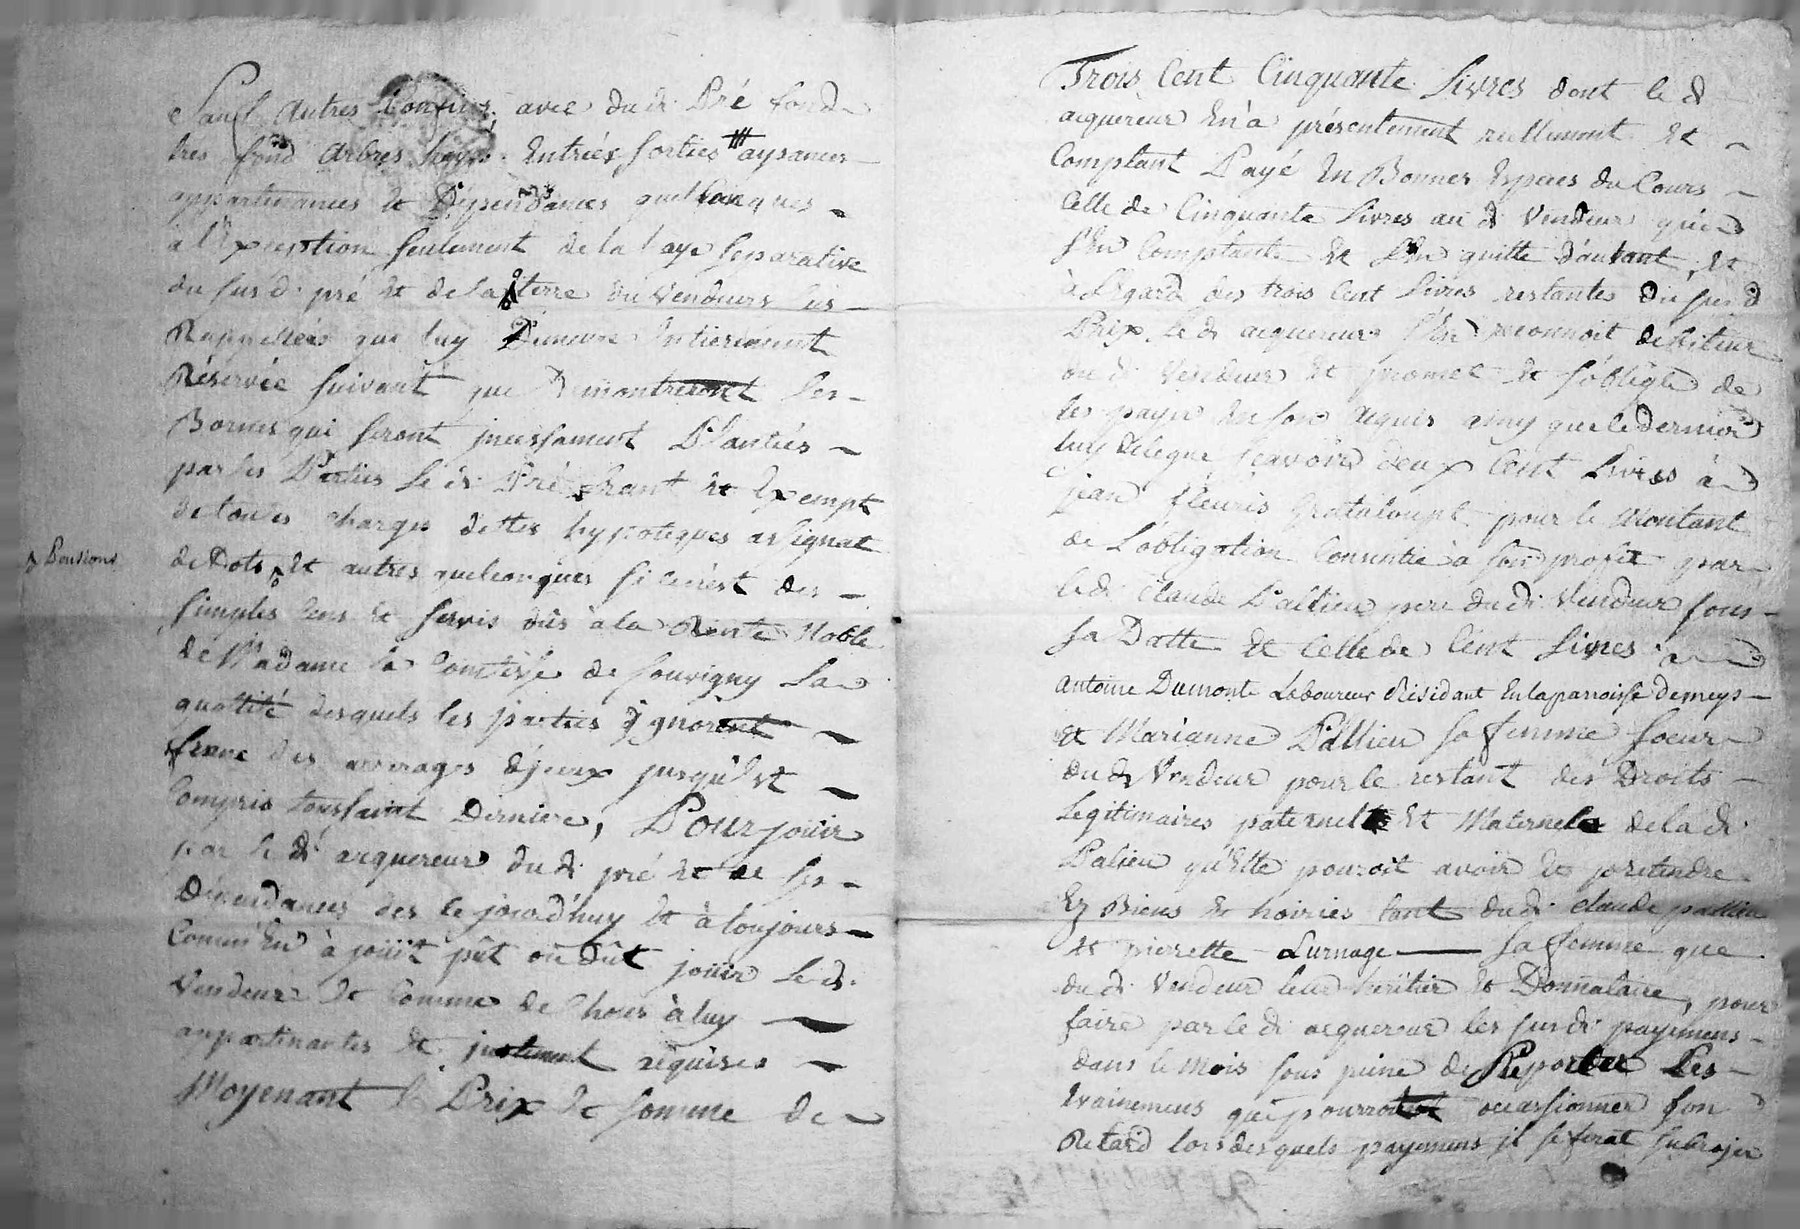 Sauf autres Confins, avec dud. Pré fond
tres fond arbres hayes Entriés sorties aysances
appartenances et Dépendances quelconques
à l'Exception seulement de la haye separative
du susd. pré et de la terre du vendeurs
Rappellées que luy Demeure Entierement
Réservée suivant que Demontreront les
Bornes qui seront jncessament Plantiés
par les Parties le d. Pré franc et Exempt
de toutes charges dettes hypoteques assignat
de Dots et autres quelconques si ce n'est des
pensions
simples cens et servis dûs à la Rente Noble
de Madame la Comtesse de souvigny La
quottité desquels les parties jgnorent
franc des arrerages Echeux jusqu'à et
Compris toussaint Derniere, Pour jouir
par le d. acquereur dud. pré et de ses
Dépendances des ce jourd'huy et à toujours
Comm'En à jouit pût ou dût jouir le d.
Vendeur et Comme de choses à luy
appartenantes et justement acquises
Moyenant le Prix et somme de
Trois Cent Cinquante Livres dont le d
acquereur En'a présentement reellement et
Comptant Payé En Bonnes Especes du Cours
Celle de Cinquante Livres au d. Vendeur qui
s'En Contente et L'En quitte d'autant, et
à L'Egard des trois Cent Livres restantes du susd
Prix Le d. acquereur s'En reconnoit debiteur
du d. Vendeur et promet et s'oblige de
les payer En son acquis ainsy que le dernier
luy delegue sçavoir deux Cent Livres à
jean fleuris Grataloupt pour le Montant
de L'obligation Consentie à son profit par
le d. Claude Pallieu pere du d. Vendeur sous
sa Datte et Celle de Cent Livres a
antoine Dumont Laboureur Résidant En la parroisse de meys
et Marianne Pallieu sa femme soeur
du d. Vendeur pour le restant des Droits
Legitimaires paternels et Maternels de la d.
Palieu qu'Elle pouroit avoir et pretendre
Ez Biens et hoiries tant du d. claude pallieu
et pierrette Lurnage sa femme que
du d. Vendeur leur héritier et Donnataire, pour
faire par le d. acquereur les sus d. payemens
dans le Mois sous peine de Reporter Les
Evainemens que pourroit occassionner son
Retard lors desquels payemens jl se ferat subroger